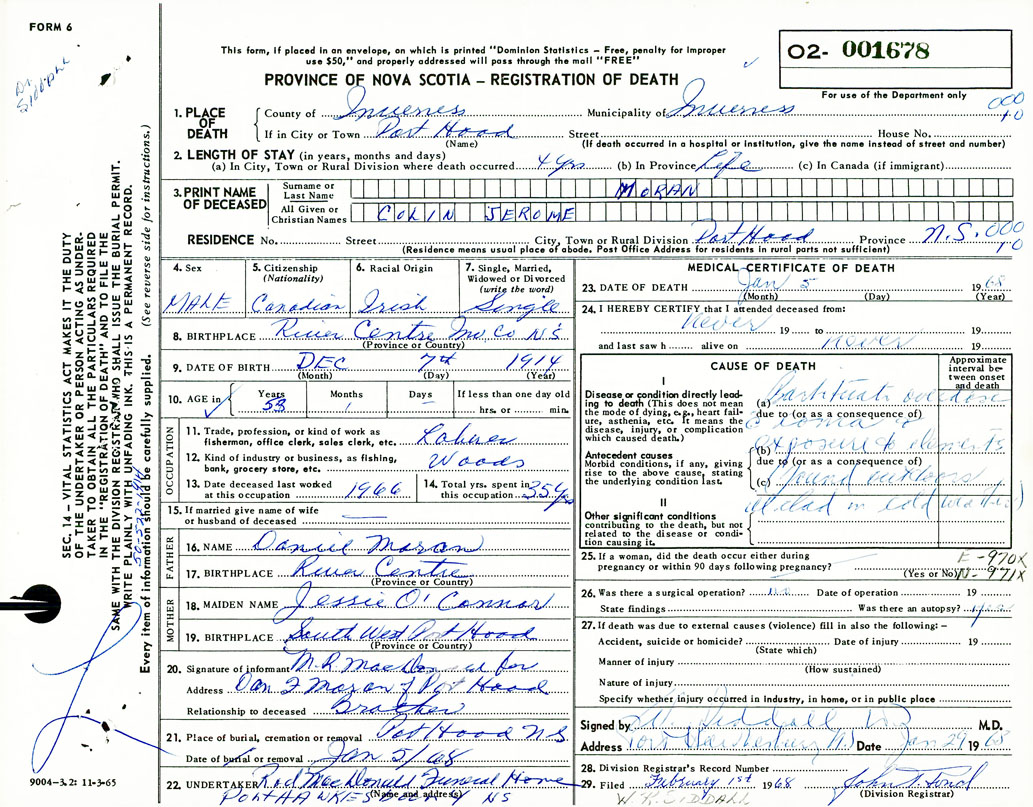 FORM 6
Dr Siddall
This form, if placed in an envelope, on which is printed "Dominion Statistics – Free, penalty for improper
use $50," and properly addressed will pass through the mail "FREE"
PROVINCE OF NOVA SCOTIA – REGISTRATION OF DEATH
O2- 001678
For use of the Department only
000
10
1. PLACE OF DEATH
County of Inverness Municipality of Inverness
If in City or Town Port Hood Street House No.
(Name) (If death occurred in a hospital or institution, give the name instead of street and number)
2. LENGTH OF STAY (in years, months and days)
(a) In City, Town or Rural Division where death occurred 4 yrs (b) In Province Life (c) In Canada (if immigrant)
3. PRINT NAME OF DECEASED
Surname or Last Name MORAN
All Given or Christian Names COLIN JEROME
RESIDENCE No. Street City, Town or Rural Division Port Hood Province N.S. 000
10
(Residence means usual place of abode. Post Office Address for residents in rural parts not sufficient)
4. Sex MALE
5. Citizenship (Nationality) Canadian
6. Racial Origin Irish
7. Single, Married, Widowed or Divorced (write the word) Single
8. BIRTHPLACE River Centre Inv. Co N.S
(Province or Country)
9. DATE OF BIRTH DEC 7th 1914
(Month) (Day) (Year)
10. AGE in Years 53 Months 1 Days If less than one day old hrs. or min.
OCCUPATION
11. Trade, profession, or kind of work as fisherman, office clerk, sales clerk, etc. Laborer
12. Kind of industry or business, as fishing, bank, grocery store, etc. Woods
13. Date deceased last worked at this occupation 1966
14. Total yrs. spent in this occupation 35 yrs
15. If married give name of wife or husband of deceased
FATHER
16. NAME Daniel Moran
17. BIRTHPLACE River Centre
(Province or Country)
MOTHER
18. MAIDEN NAME Jessie O'Connor
19. BIRTHPLACE South West Port Hood
(Province or Country)
20. Signature of informant M. R. MacDonald for
Address Dan F Moran, Port Hood
Relationship to deceased Brother
21. Place of burial, cremation or removal Port Hood NS
Date of burial or removal Jan 5/68
22. UNDERTAKER Rod MacDonald Funeral Home
(Name and address)
NS
MEDICAL CERTIFICATE OF DEATH
23. DATE OF DEATH Jan 5 1968
(Month) (Day) (Year)
24. I HEREBY CERTIFY that I attended deceased from:
Never 19 to 19
and last saw h alive on never 19
CAUSE OF DEATH
Approximate interval between onset and death
I
Disease or condition directly leading to death (This does not mean the mode of dying, e.g., heart failure, asthenia, etc. It means the disease, injury, or complication which caused death.)
(a) Barbiturate overdose
due to (or as a consequence of)
c coma &
Antecedent causes
Morbid conditions, if any, giving rise to the above cause, stating the underlying condition last.
(b) exposure to elements
due to (or as a consequence of)
(c) (found outdoors
ill clad in cold weather)
II
Other significant conditions
contributing to the death, but not related to the disease or condition causing it.
25. If a woman, did the death occur either during pregnancy or within 90 days following pregnancy?
(Yes or No)
E-970X
N-971X
26. Was there a surgical operation? no Date of operation 19
State findings Was there an autopsy? yes
27. If death was due to external causes (violence) fill in also the following: –
Accident, suicide or homicide? Date of injury 19
(State which)
Manner of injury
(How sustained)
Nature of injury
Specify whether injury occurred in industry, in home, or in public place
Signed by W. Siddall MD M.D.
Address Port Hawkesbury NS Date Jan 29 1968
28. Division Registrar's Record Number
29. Filed February 1st 1968
(Division Registrar)
W. R. SIDDALL
SEC. 14 – VITAL STATISTICS ACT MAKES IT THE DUTY
OF THE UNDERTAKER OR PERSON ACTING AS UNDER-
TAKER TO OBTAIN ALL THE PARTICULARS REQUIRED
IN THE "REGISTRATION OF DEATH" AND TO FILE THE
SAME WITH THE DIVISION REGISTRAR WHO SHALL ISSUE THE BURIAL PERMIT.
WRITE PLAINLY WITH UNFADING INK. THIS IS A PERMANENT RECORD.
Every item of information should be carefully supplied. (See reverse side for instructions.)
9004–3.2: 11-3-65